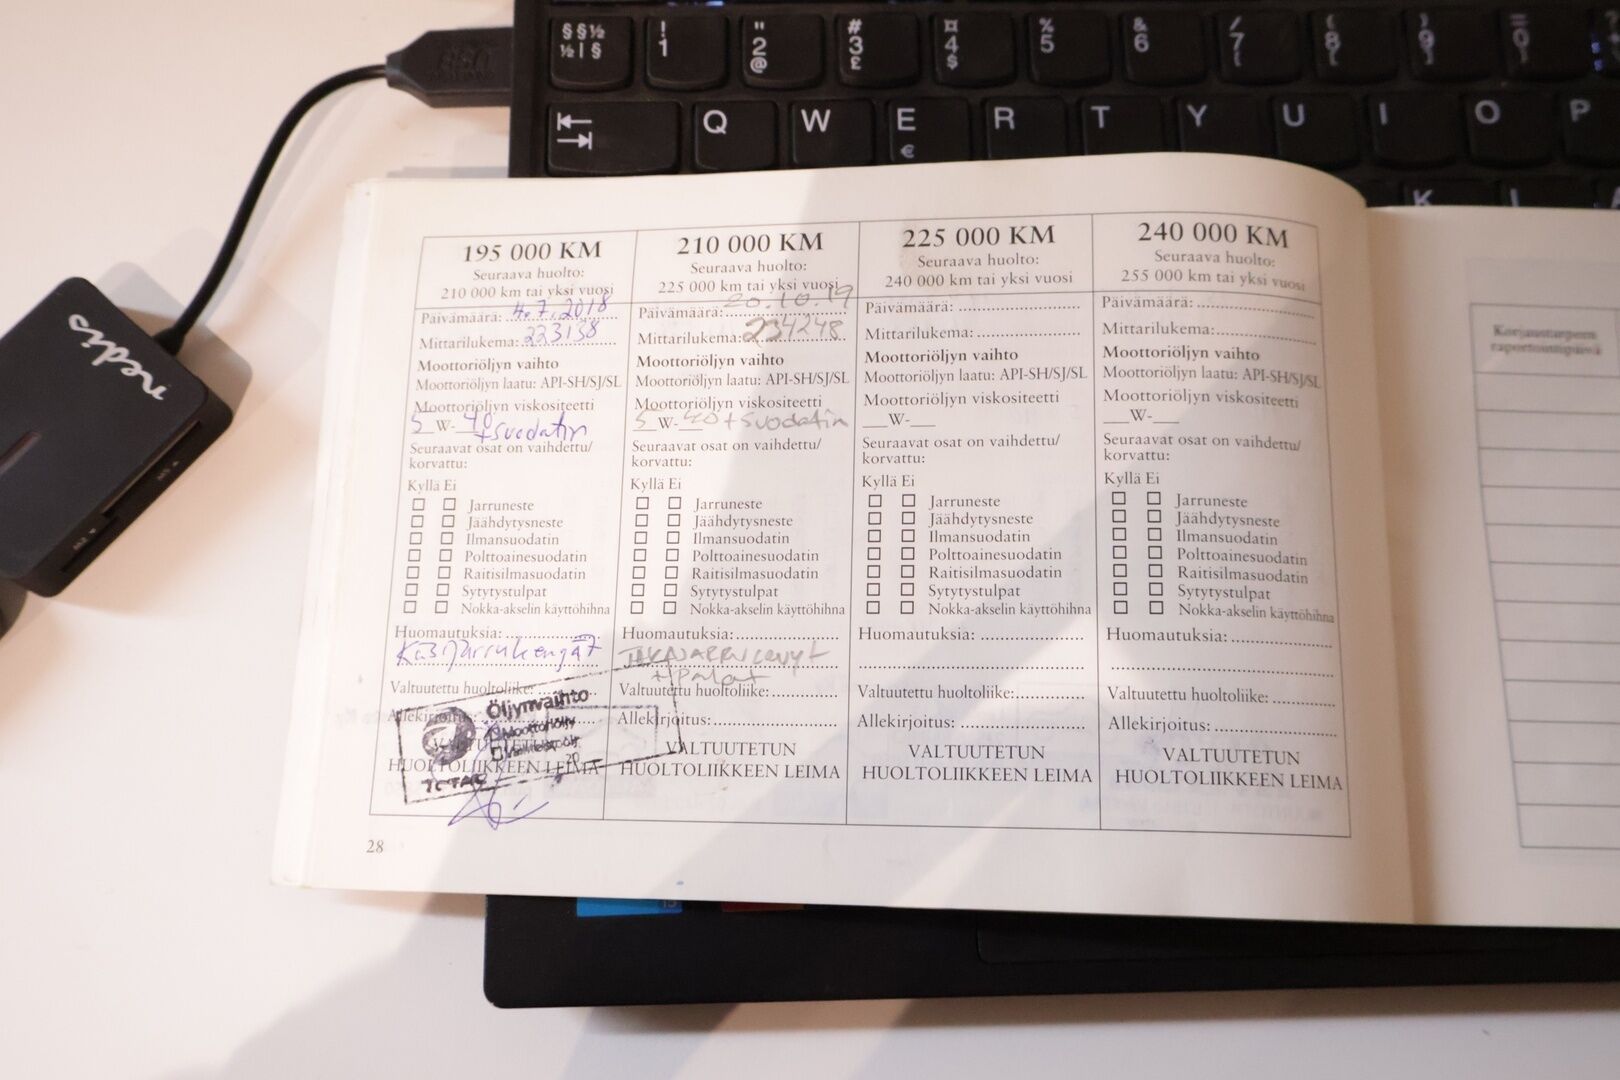 § § ½
½ | §
! 1
" 2 @
# 3 £
¤ 4 $
% 5
& 6
/ 7 {
Q W E R T Y U I O P
€
K L
nedis
195 000 KM
Seuraava huolto:
210 000 km tai yksi vuosi
Päivämäärä: 4.7.2018
Mittarilukema: 223138
Moottoriöljyn vaihto
Moottoriöljyn laatu: API-SH/SJ/SL
Moottoriöljyn viskositeetti
5 W- 40
+suodatin
Seuraavat osat on vaihdettu/
korvattu:
Kyllä Ei
Jarruneste
Jäähdytysneste
Ilmansuodatin
Polttoainesuodatin
Raitisilmasuodatin
Sytytystulpat
Nokka-akselin käyttöhihna
Huomautuksia:
Käsijarrukengät
Valtuutettu huoltoliike:
Allekirjoitus:
VALTUUTETUN
HUOLTOLIIKKEEN LEIMA
Öljynvaihto
Moottoriöljy
TOTAL
210 000 KM
Seuraava huolto:
225 000 km tai yksi vuosi
Päivämäärä: 20.10.19
Mittarilukema: 234248
Moottoriöljyn vaihto
Moottoriöljyn laatu: API-SH/SJ/SL
Moottoriöljyn viskositeetti
5 W- 40 +suodatin
Seuraavat osat on vaihdettu/
korvattu:
Kyllä Ei
Jarruneste
Jäähdytysneste
Ilmansuodatin
Polttoainesuodatin
Raitisilmasuodatin
Sytytystulpat
Nokka-akselin käyttöhihna
Huomautuksia:
+palat
Valtuutettu huoltoliike:
Allekirjoitus:
VALTUUTETUN
HUOLTOLIIKKEEN LEIMA
225 000 KM
Seuraava huolto:
240 000 km tai yksi vuosi
Päivämäärä:
Mittarilukema:
Moottoriöljyn vaihto
Moottoriöljyn laatu: API-SH/SJ/SL
Moottoriöljyn viskositeetti
__W-__
Seuraavat osat on vaihdettu/
korvattu:
Kyllä Ei
Jarruneste
Jäähdytysneste
Ilmansuodatin
Polttoainesuodatin
Raitisilmasuodatin
Sytytystulpat
Nokka-akselin käyttöhihna
Huomautuksia:
Valtuutettu huoltoliike:
Allekirjoitus:
VALTUUTETUN
HUOLTOLIIKKEEN LEIMA
240 000 KM
Seuraava huolto:
255 000 km tai yksi vuosi
Päivämäärä:
Mittarilukema:
Moottoriöljyn vaihto
Moottoriöljyn laatu: API-SH/SJ/SL
Moottoriöljyn viskositeetti
__W-__
Seuraavat osat on vaihdettu/
korvattu:
Kyllä Ei
Jarruneste
Jäähdytysneste
Ilmansuodatin
Polttoainesuodatin
Raitisilmasuodatin
Sytytystulpat
Nokka-akselin käyttöhihna
Huomautuksia:
Valtuutettu huoltoliike:
Allekirjoitus:
VALTUUTETUN
HUOLTOLIIKKEEN LEIMA
28